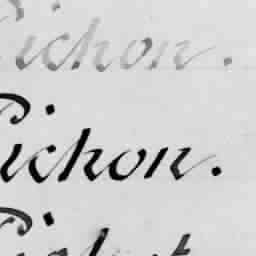 Pichon.
Pichon.